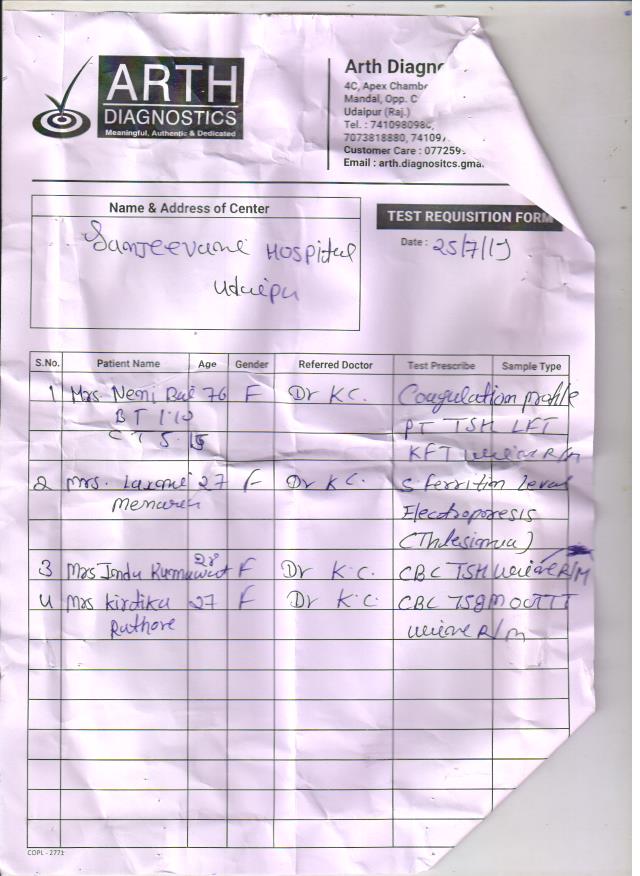 ARTH
DIAGNOSTICS
Meaningful, Authentic & Dedicated
Arth Diagno
4C, Apex Chambe
Mandal, Opp. C
Udaipur (Raj.)
Tel. : 741098098
7073818880, 74109
Customer Care : 07725
Email : arth.diagnositcs.gma
Name & Address of Center
TEST REQUISITION FORM
Sanjeevani HOSPital
Udaipu
Date : 25/7/19
S.No. Patient Name Age Gender Referred Doctor Test Prescribe Sample Type
1 Mrs. Neni Bai 76 F Dr KC. Coagulation profile
BT 1.10 PT TSH LFT
CT 5.15 KFT urine R/m
2 Mrs. Laxmi 27 F Dr K C. S ferrition level
menaria Electroporesis
(Thlesimia)
3 Mrs Indu Kumawat 28 F Dr K.C. CBC TSH urine R/M
4 Mrs Kirtika 27 F Dr K.C. CBC 75gm OGTT
Rathore urine R/m
COPL - 2771